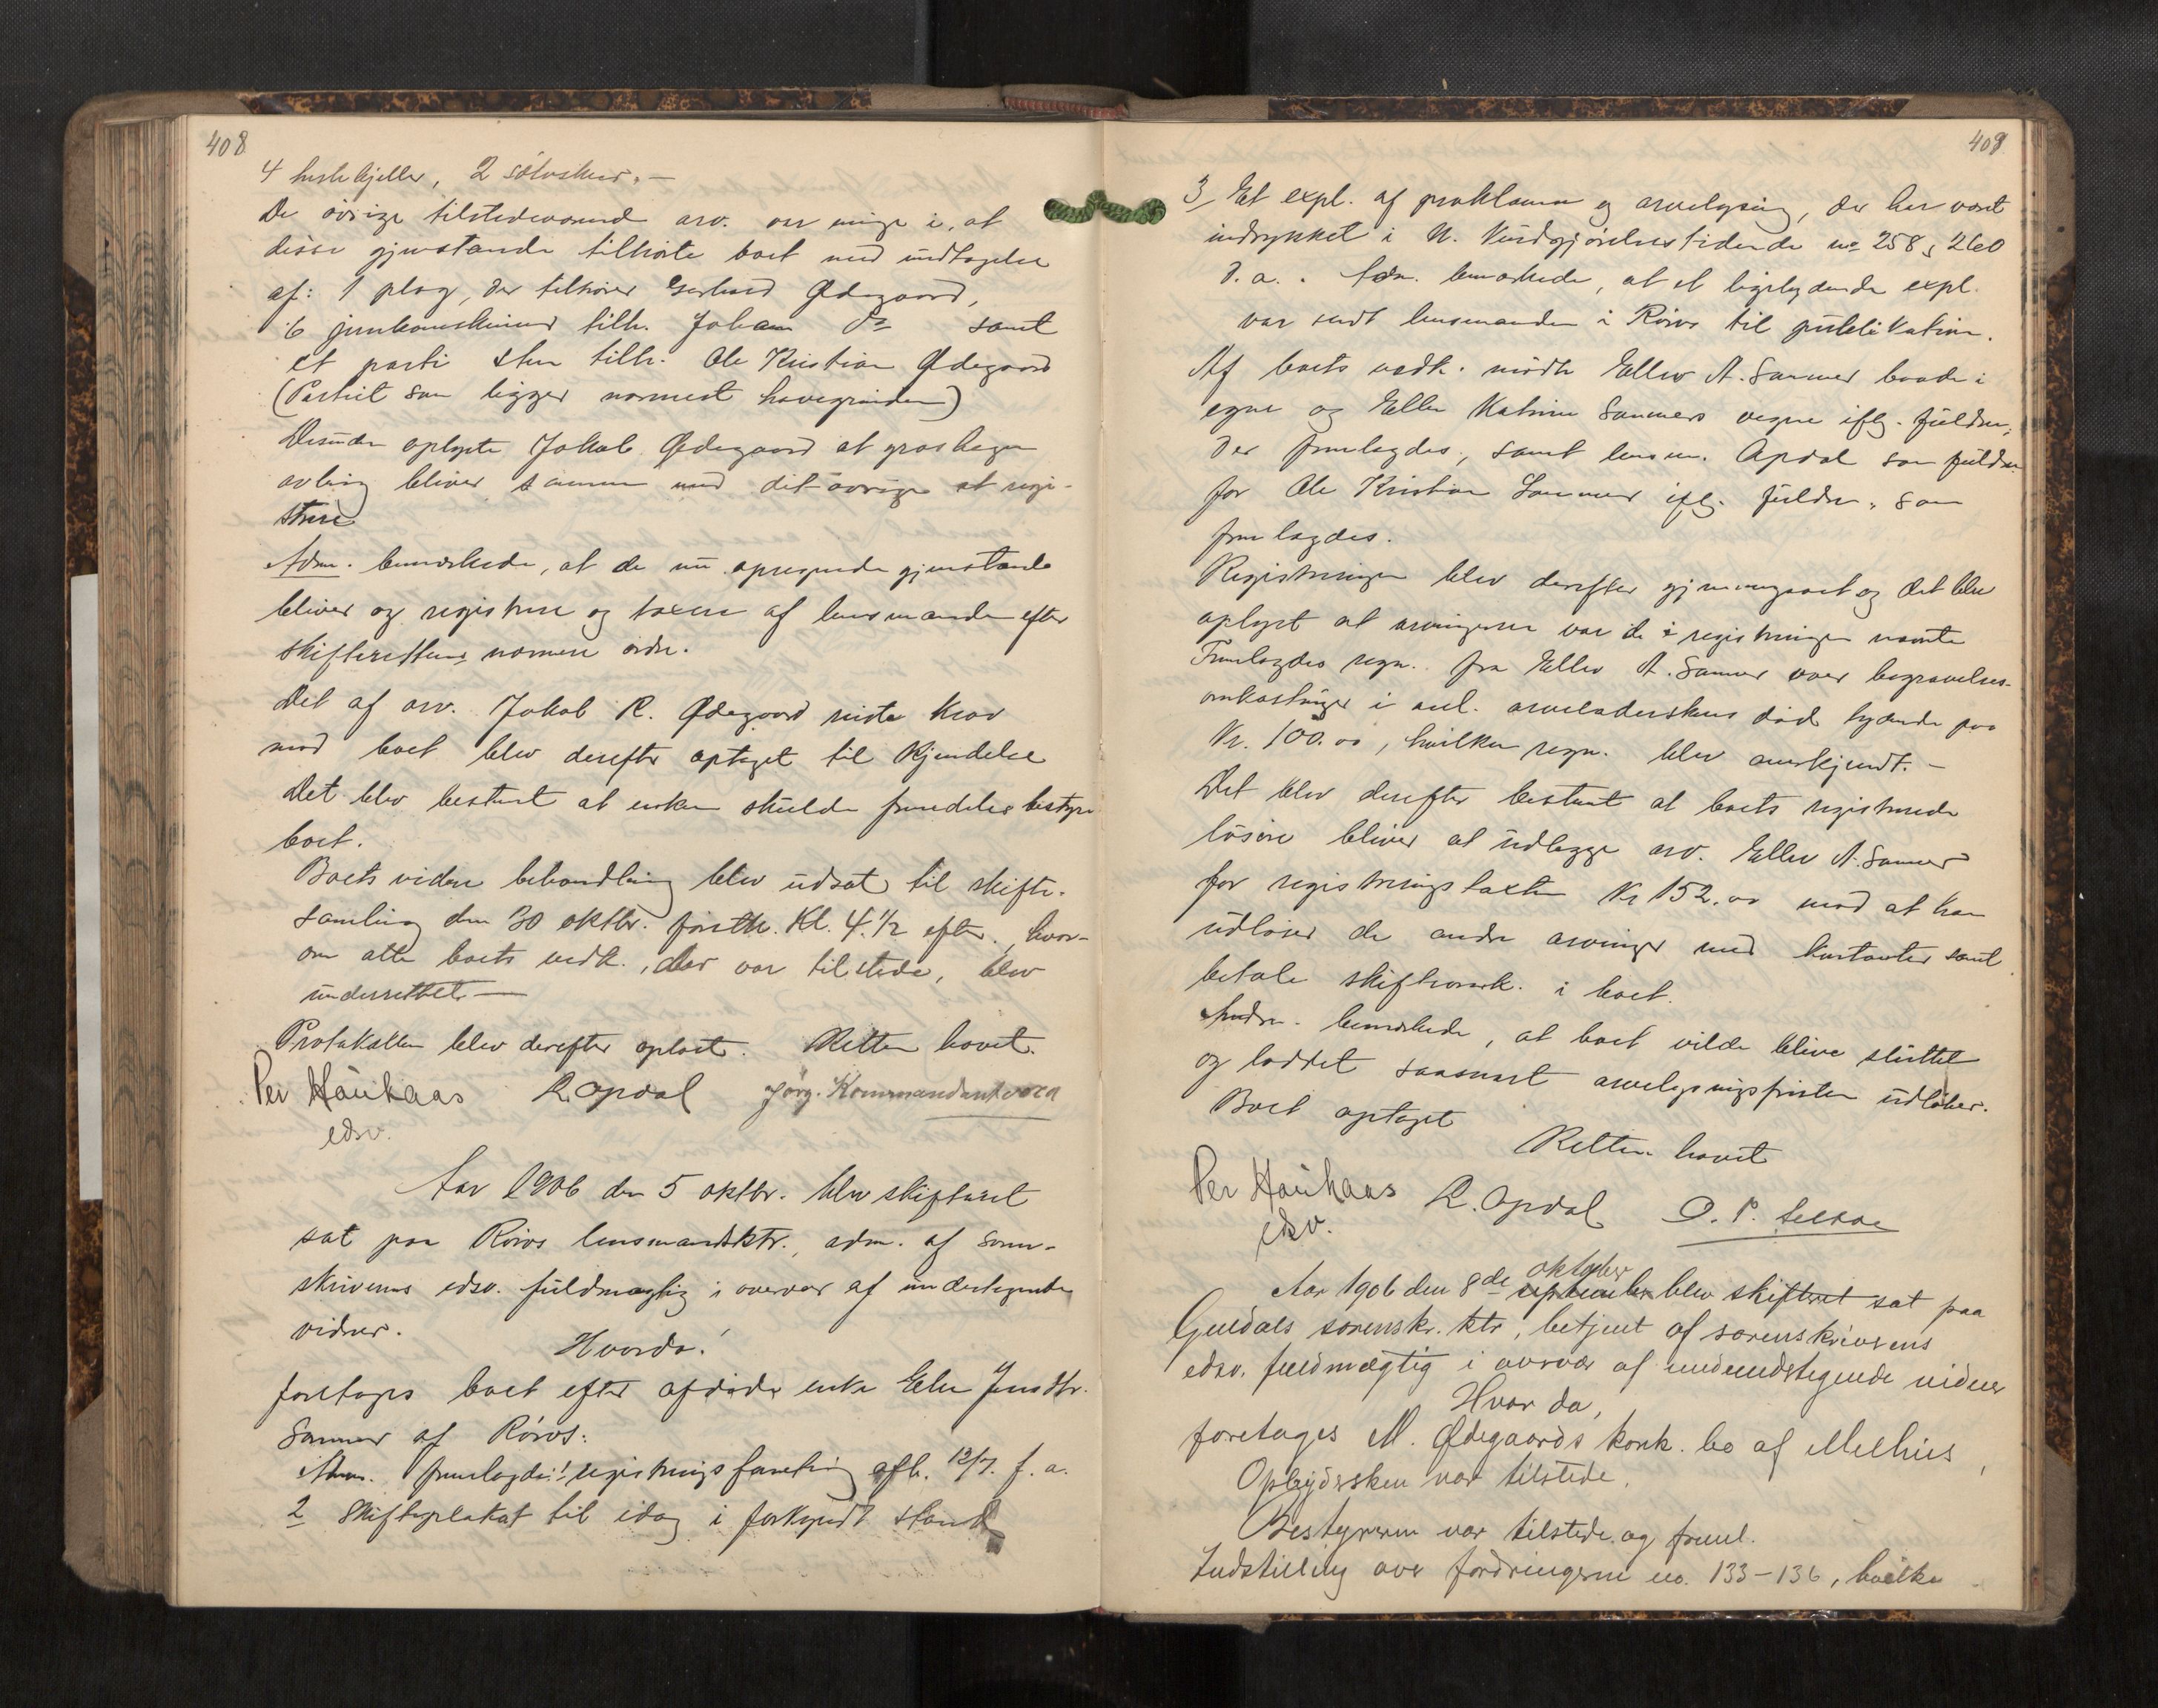 408
4 hestebjeller, 2 sölvskeer. —
De övrige tilstedeværend arv. var enige i, at
disse gjenstande tilhörte boet med undtagelse
af: 1 plog, der tilhörer Gerhard Ødegaard,
6 tilh. Johan do samt
et parti sten tilh. Ole Kristian Ødegaard
(Partiet som ligger nærmest havegrinden)
Desuden oplyste Jakob Ødegaard at
avling bliver sammen med det övrige at regi-
strere
Adm. bemærkede, at de nu opregnede gjenstande
bliver og registrere og taxere af lensmanden efter
skifterettens nærmere ordre.
Det af arv. Jakob R. Ødegaard reiste krav
mod boet blev derefter optaget til kjendelse
Det blev bestemt at enken skulde fremdeles bestyre
boet.
Boets videre behandling blev udsat til skifte-
samling den 30 oktbr. förstk. kl. 4 1/2 efter., hvor-
om alle boets vedk., der var tilstede, blev
underrettet —
Protokollen blev derefter oplæst. Retten hævet.
Per Haukaas R. Opdal Jörg. Kommandantvold
edsv.
Aar 1906 den 5 oktbr. blev skifteret
sat paa Röros lensmandsktr., adm. af soren-
skriverens edsv. fuldmægtig i overvær af undertegnede
vidner.
Hvorda!
foretages boet efter afdöde enke Elen Jensdtr.
Sammer af Röros:
Adm. fremlagde: 1 registringsforretning afh. 12/7. f. a.
2 Skifteplakat til idag i forkyndt stand
409
3 Et expl. af proklama og arvelysing, der har været
indrykket i N. Kundgjörelsestidende no 258 & 260
d. a. . Adm. bemærkede, at et ligelydende expl.
var sendt lensmanden i Röros til publikation.
Af boets vedk. mödte Ellev A. Sammer baade i
egne og Ellen Katrine Sammers vegne iflg. fuldm.,
der fremlagdes, samt lensm. Opdal som fuldm.
for Ole Kristian Sammer iflg. fuldm., som
fremlagdes.
Registringen blev derefter gjennemgaaet og det blev
oplyst at arvingerne var de i registringen nævnte
Fremlagdes regn. fra Ellev A. Sammer over begravelses-
omkostninger i anl. arveladerskens död lydende paa
Kr. 100.00, hvilken regn. blev anerkjendt. —
Det blev derefter bestemt at boets registrerede
lösöre bliver at udlægge arv. Ellev A. Sammer
for registringstaxten Kr 152.00 mod at han
udlöser de andre arvinger med kontanter samt
betale skifteomk. i boet.
Adm. bemærkede, at boet vilde blive sluttet
og loddet saasnart arvelysningsfristen udlöber.
Boet optaget
Retten hævet
Per Haukaas R. Opdal O. P.
edsv.
Aar 1906 den 8de september oktober blev skifteret sat paa
Guldals sorenskr. ktr, betjent af sorenskriverens
edsv. fuldmægtig i overvær af undertegnede vidner
Hvor da,
foretages M. Ødegaards konk. bo af Melhus,
Opbydersken var tilstede.
Bestyreren var tilstede og freml.
Indstilling over fordringerne no. 133-136, hvilke